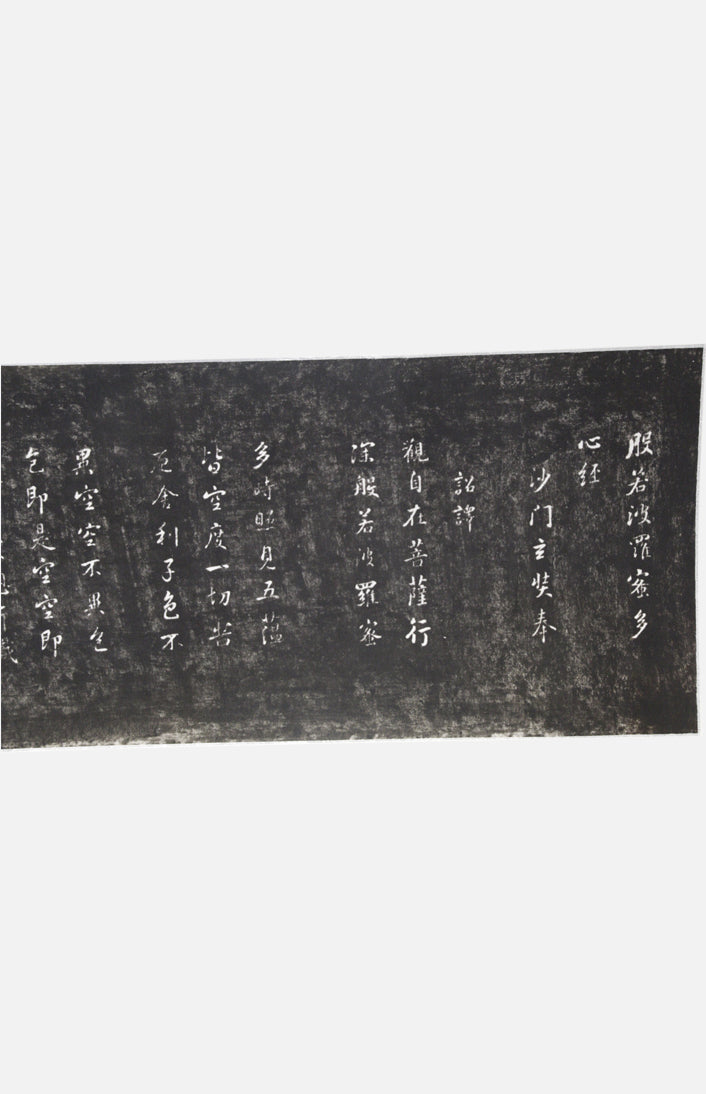 般若波羅蜜多
心経
沙门玄奘奉
詔譯
觀自在菩薩行
深般若波羅蜜
多時照見五蘊
皆空度一切苦
厄舍利子色不
異空空不異色
色即是空空即